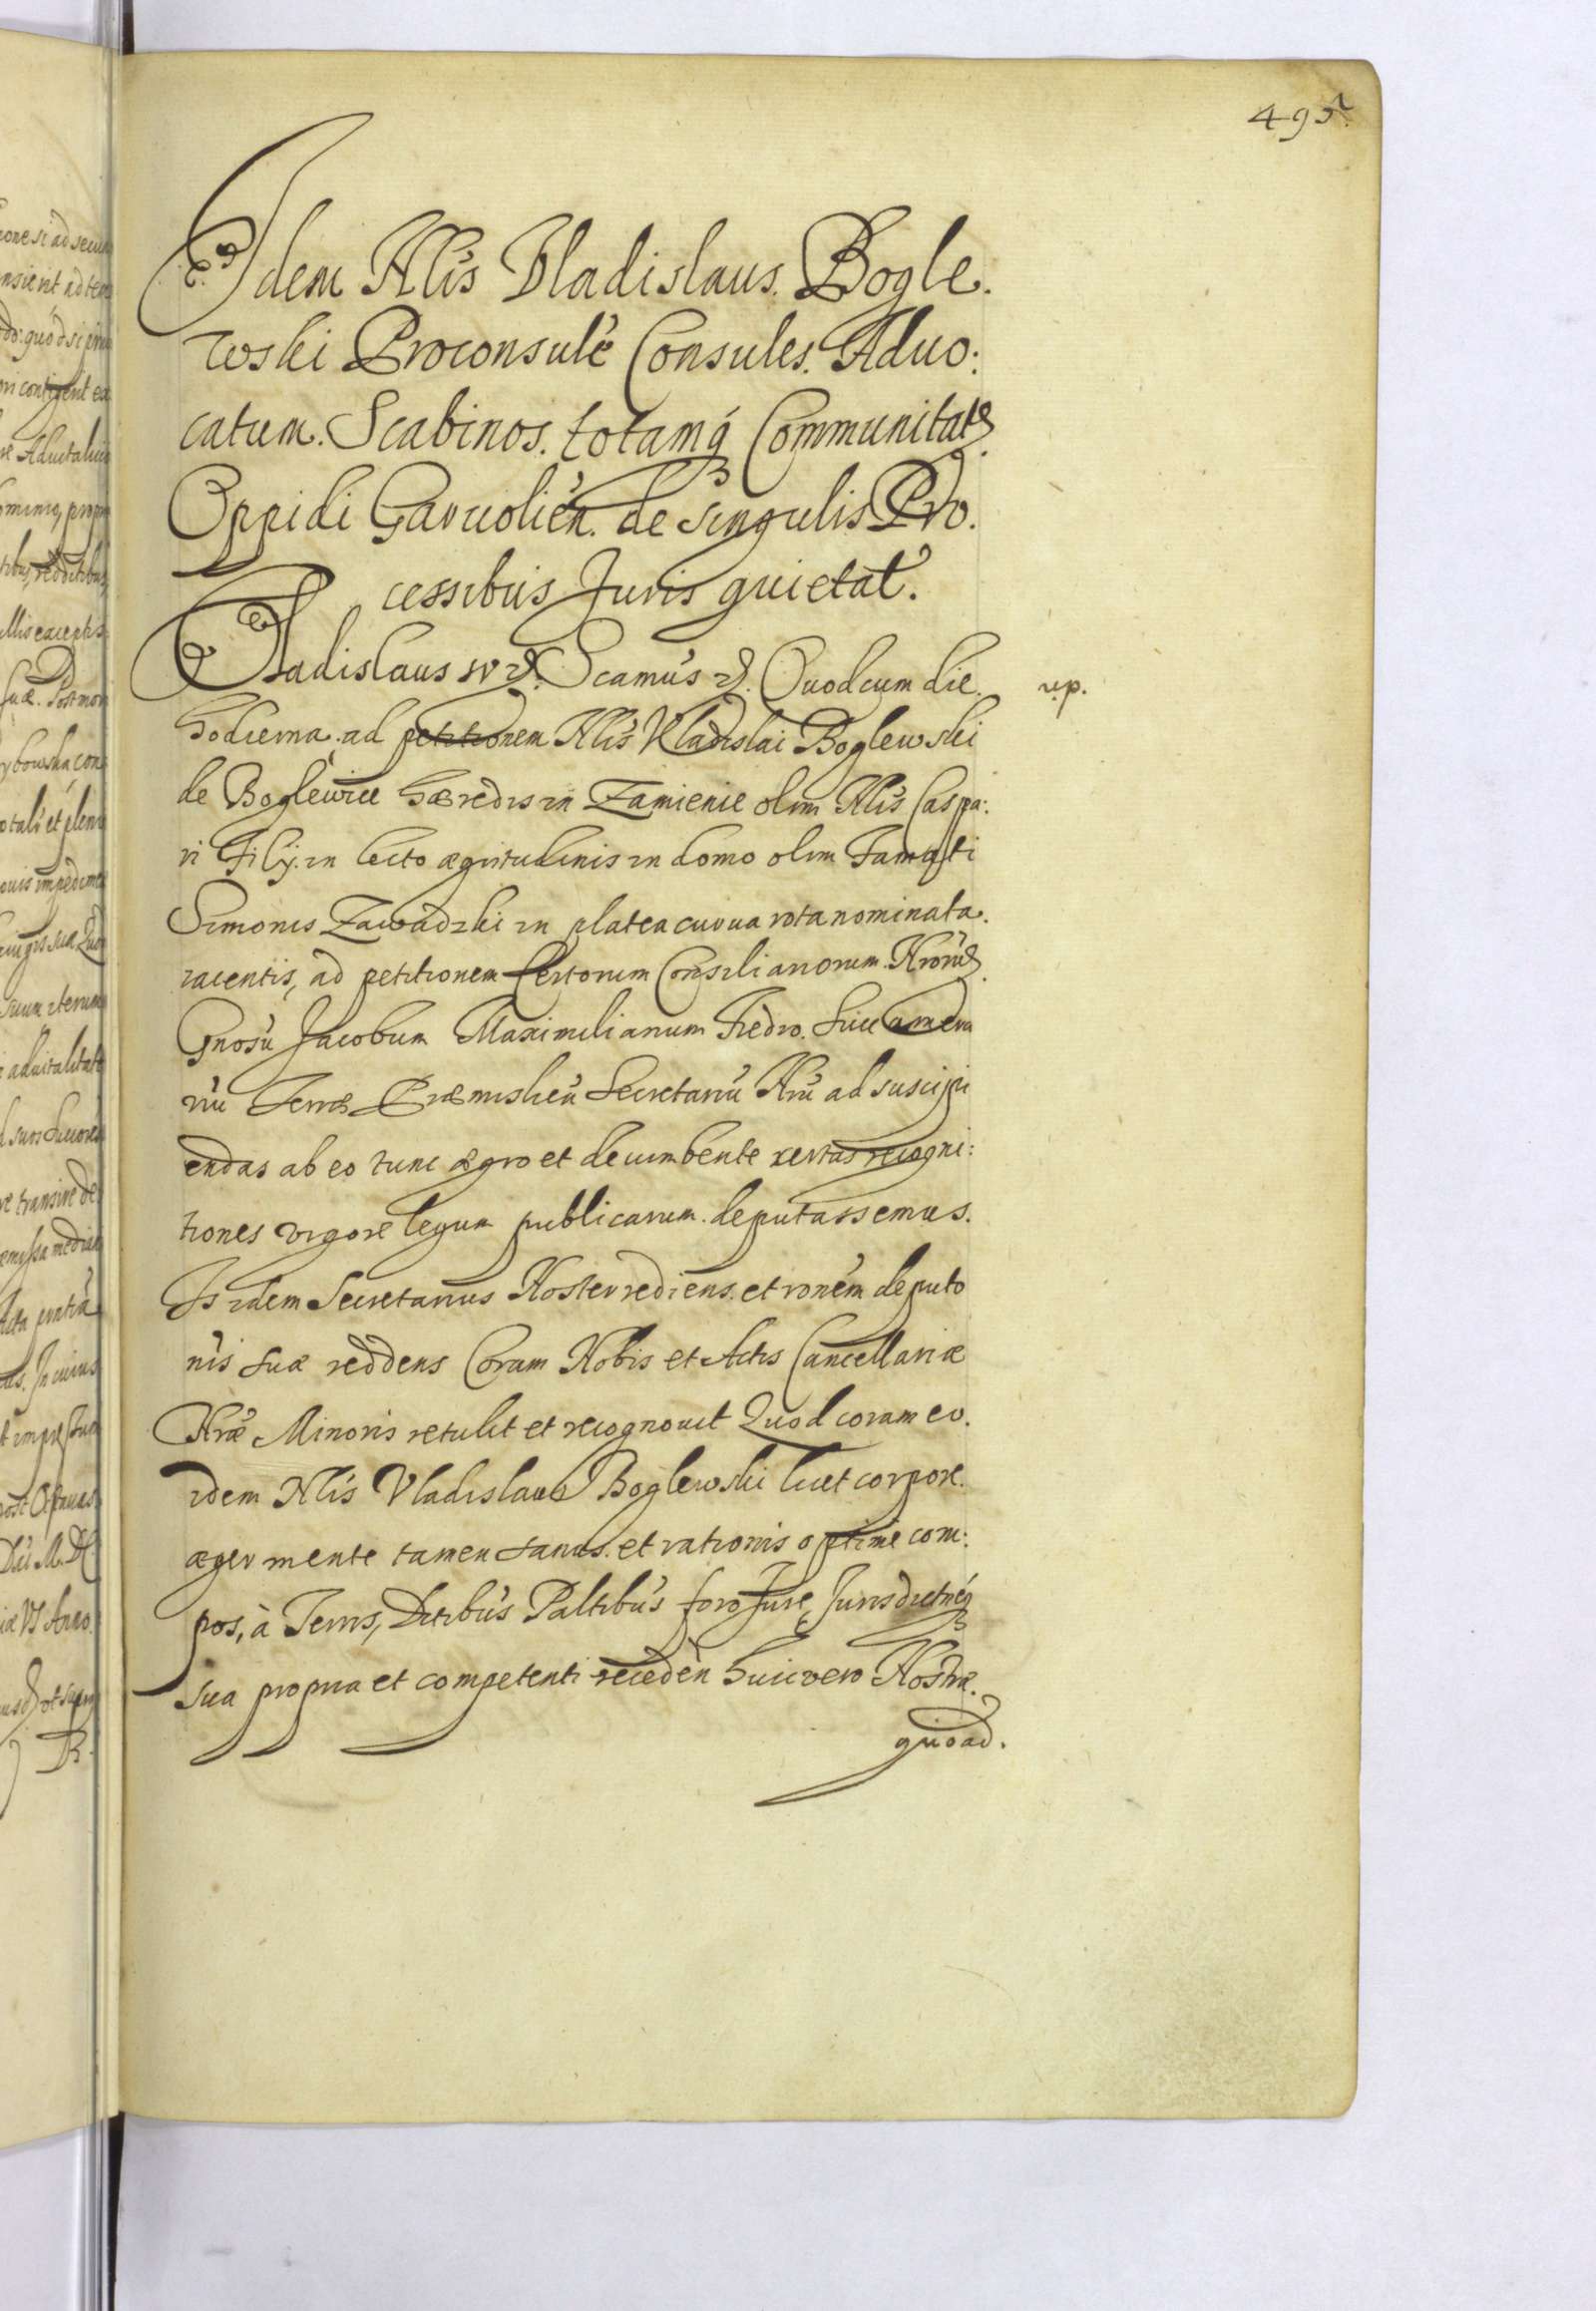 495
Idem Nlis Vladislaus. Bogle.
wski Proconsulē Consules. Aduo:
catum. Scabinos. totamq́ Communitatē
Oppidi Garuolień. de singulis Pro.
cessibus Juris quietat.
Vladislaus IV &. Scamus &. Quod cum die
r.p.
hodierna ad petitionem Nlis Vladislai Boglewski
de Boglewice hæredis in Zamienie olim Nlis Caspa:
ri Filij. in lecto ægritudinis in domo olim Famati
Simonis Zawadzki in platea curua rota nominata.
iacentis, ad petitionem Certorum Consiliariorum Nrorū
Gnosū Jacobum Maximilianum Fredro. Succamera
riū Terræ Præmisliēn Secretariū Nrū ad suscipi
endas ab eo tunc ægro et decumbente certas recogni:
tiones vigore legum publicarum. deputassemus.
Is idem Secretarius Noster rediens. et ronem deputo
nis suæ reddens Coram Nobis et Actis Cancellariæ
Nræ Minoris retulit et recognouit Quod coram eo.
idem Nlis Vladislaus Boglewski licet corpore.
æger mente tamen sanus. et rationis optime com:
pos, à Terris, Ditibus Paltibus foro Jure, Jurisdictneq́
sua propria et competenti recedēn huic vero Nostræ.
quoad.